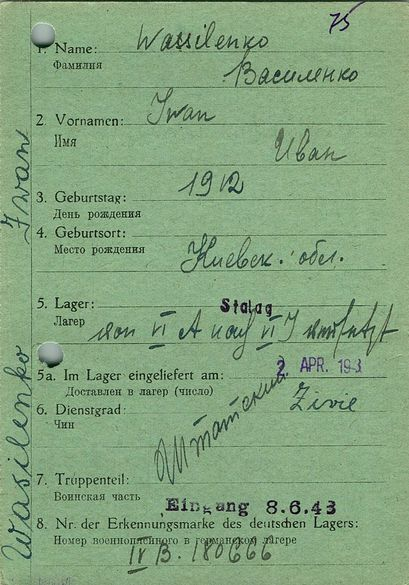 75
1. Name: Wassilenko
Фамилия
Василенко
2. Vornamen: Iwan
Имя
Иван
3. Geburtstag: 1912
День рождения
4. Geburtsort:
Место рождения
Киевск. обл.
5. Lager: Stalag
Лагер
von VI A nach VI J versetzt
5a. Im Lager eingeliefert am: 2. APR. 1943
Доставлен в лагер (число)
6. Dienstgrad: Zivie
Чин
Штатский
7. Truppenteil:
Воинская часть
Eingang 8.6.43
8. Nr. der Erkennungsmarke des deutschen Lagers:
Номер военнопленного в германском лагере
IV B. 180666
Wasilenko Iwan